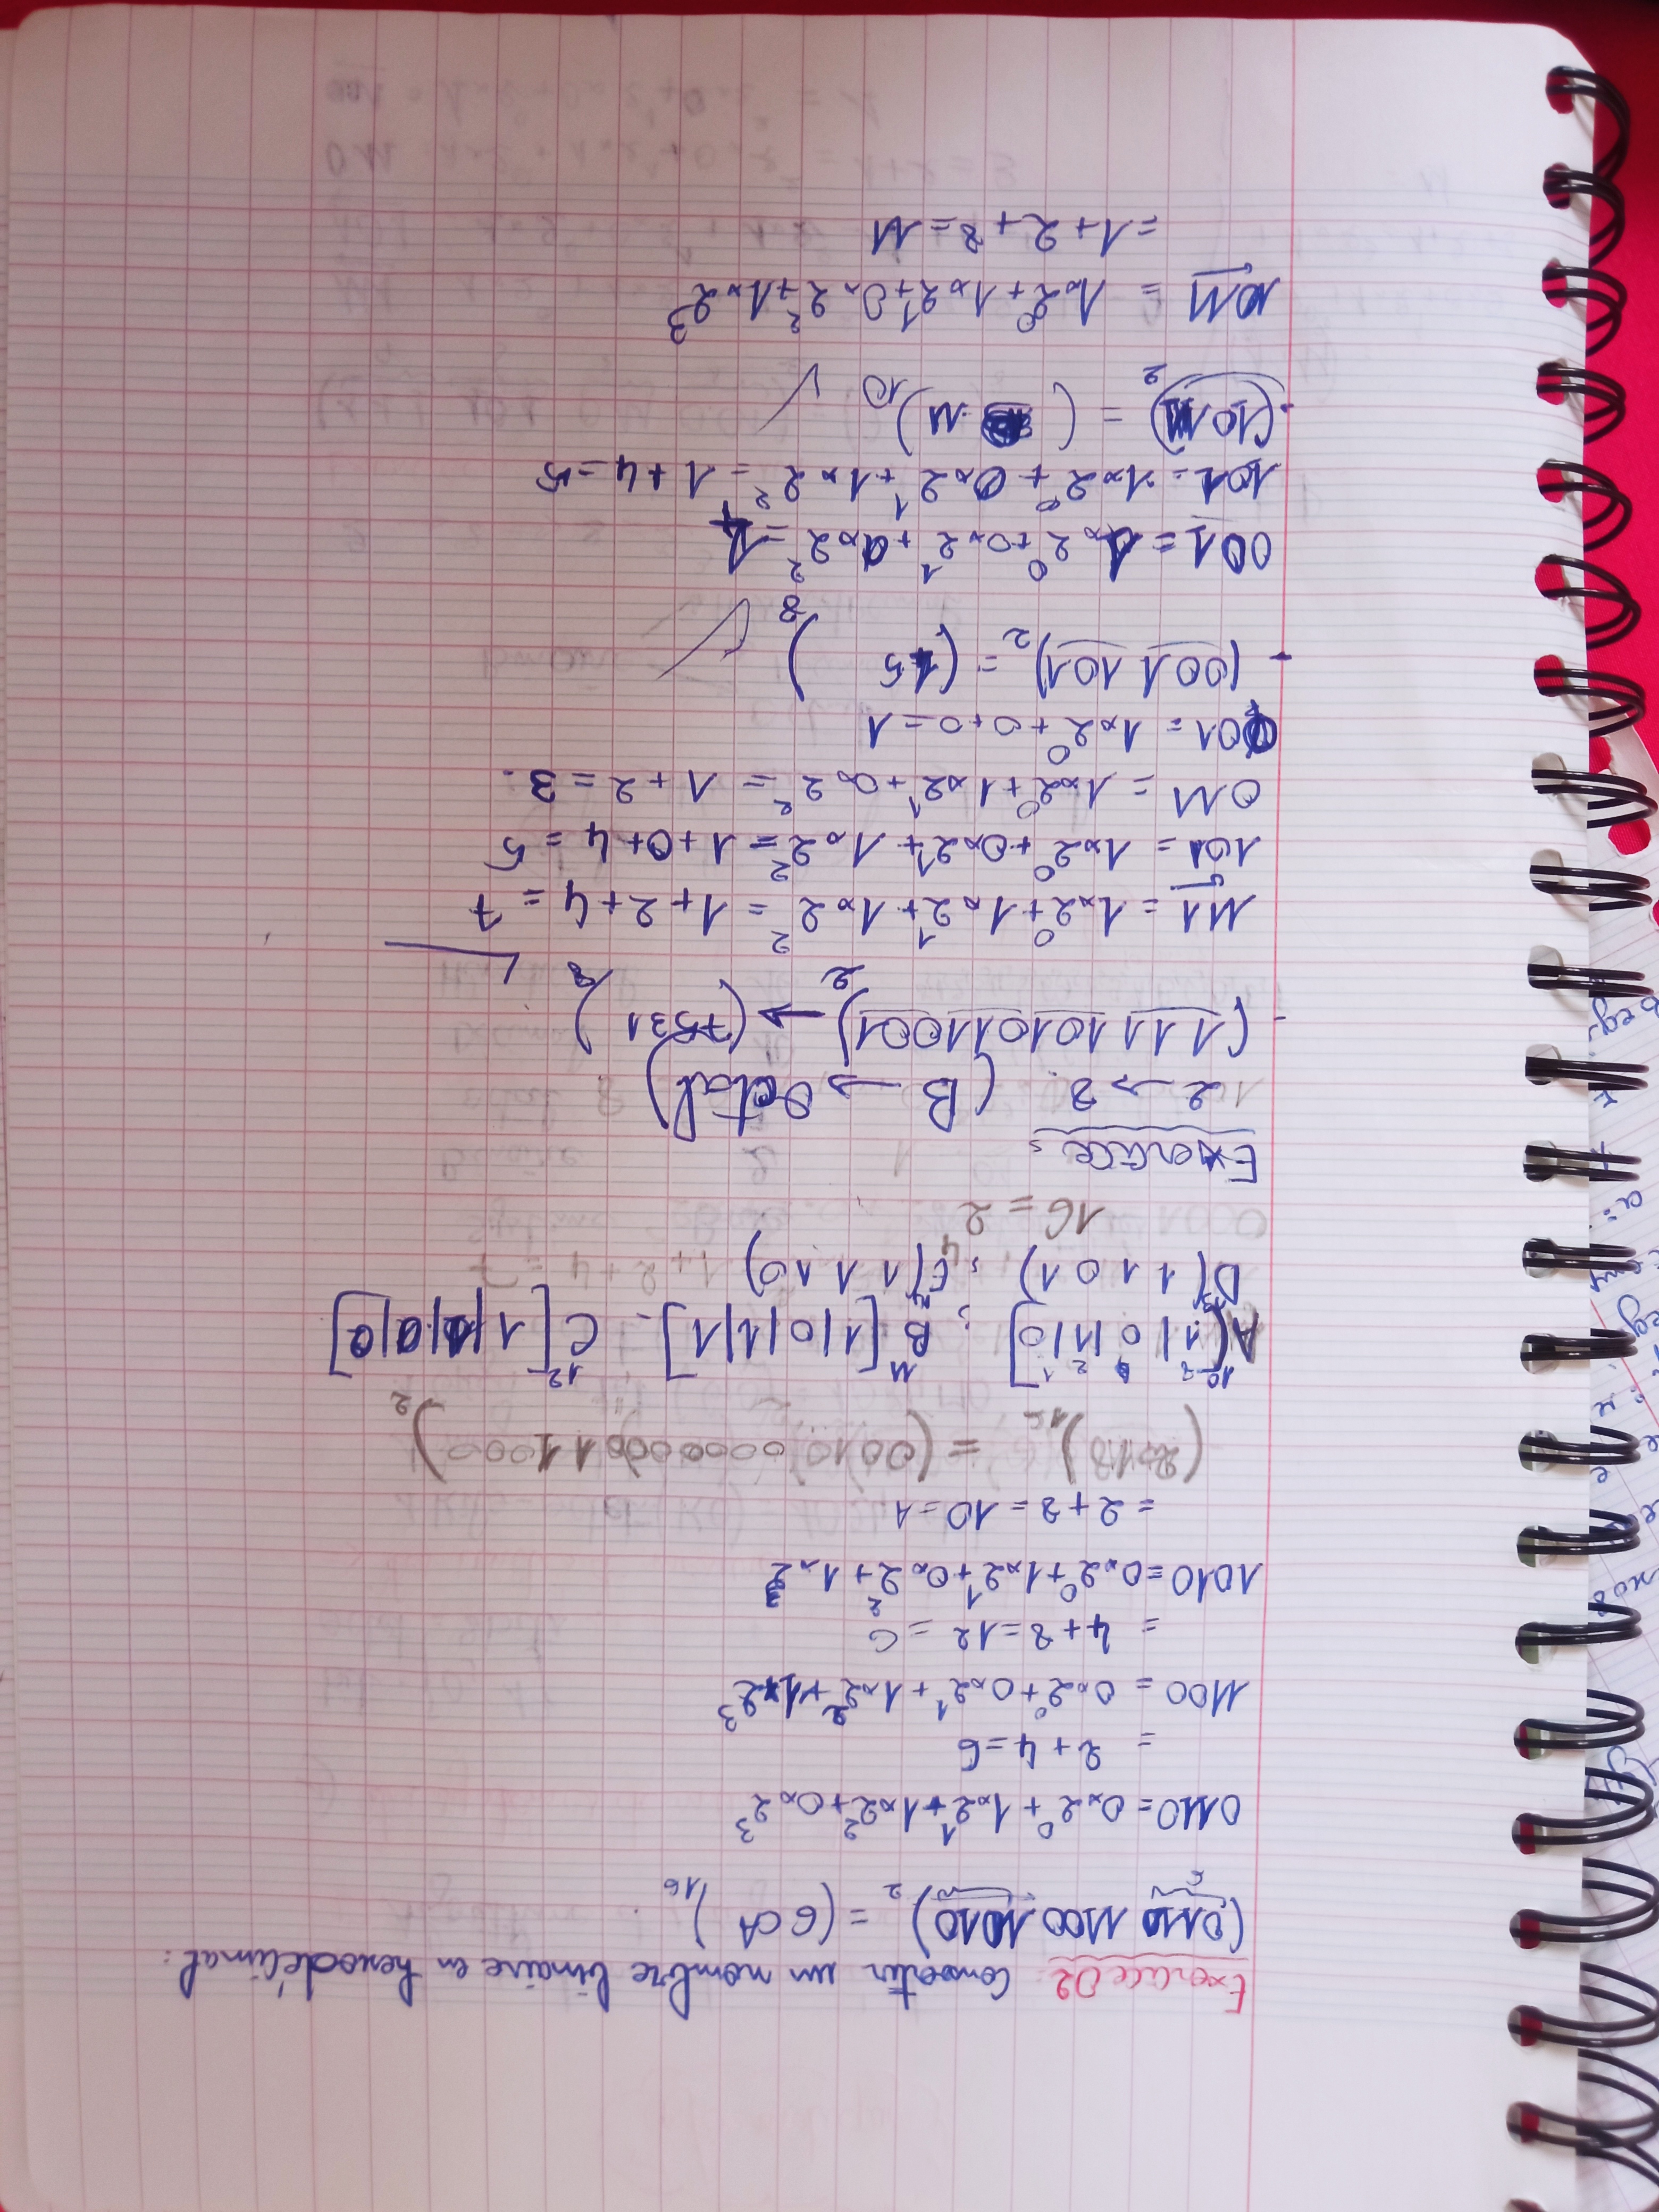 Exercice 02 Convertir un nombre binaire en hexadécimal :
(0110 1100 1010)₂ = (6CA)₁₆
0110 = 0×2⁰ + 1×2¹ + 1×2² + 0×2³
= 2 + 4 = 6
1100 = 0×2⁰ + 0×2¹ + 1×2² + 1×2³
= 4 + 8 = 12 = C
1010 = 0×2⁰ + 1×2¹ + 0×2² + 1×2³
= 2 + 8 = 10 = A
(2018)₁₆ = (0010 0000 0001 1000)₂
A[1|0|1|0] ; B[1|0|1|1] - C[1|1|0|0]
D(1101) ; E(1110)
16 = 2⁴
Exercice :
2 → 8 (B → Octal)
- (111101011001)₂ → (7531)₈
111 = 1×2⁰ + 1×2¹ + 1×2² = 1 + 2 + 4 = 7
101 = 1×2⁰ + 0×2¹ + 1×2² = 1 + 0 + 4 = 5
011 = 1×2⁰ + 1×2¹ + 0×2² = 1 + 2 = 3.
001 = 1×2⁰ + 0 + 0 = 1
- (001 101)₂ = (15)₈
001 = 1×2⁰ + 0×2¹ + 0×2² = 1
101 = 1×2⁰ + 0×2¹ + 1×2² = 1 + 4 = 5
. (1011)₂ = (11)₁₀
1011 = 1×2⁰ + 1×2¹ + 0×2² + 1×2³
= 1 + 2 + 8 = 11